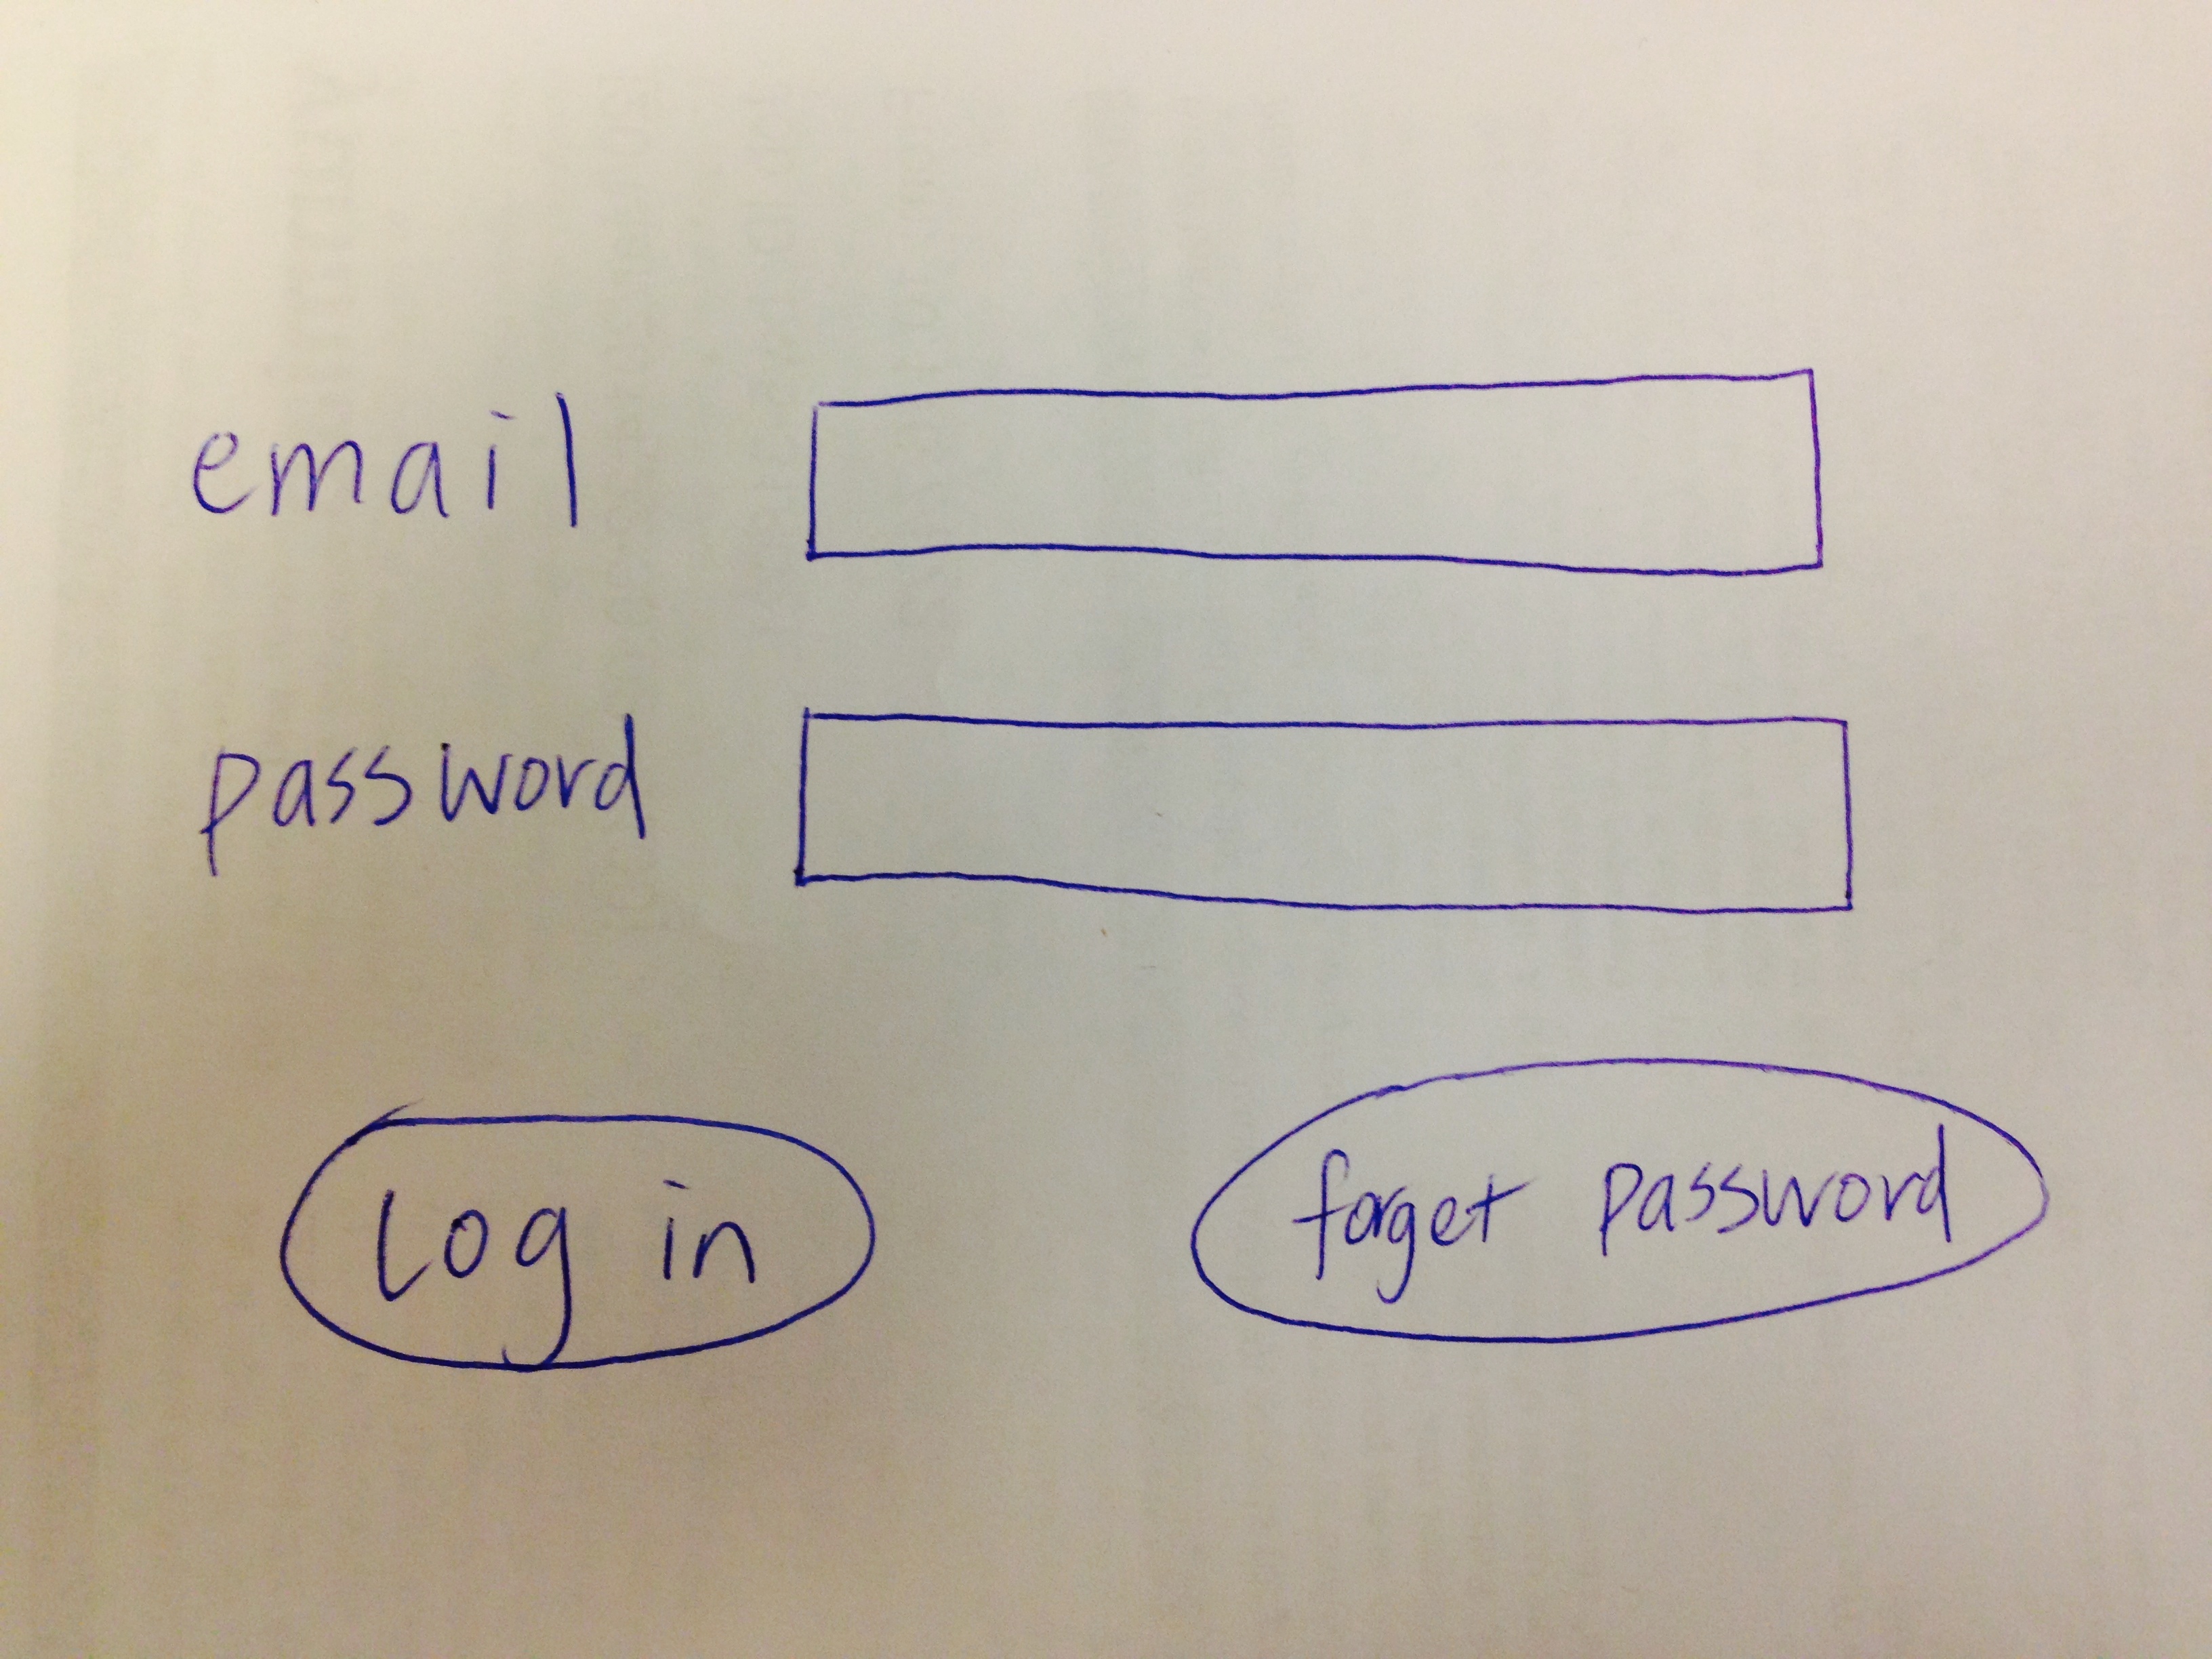 email
password
Log in
forget password